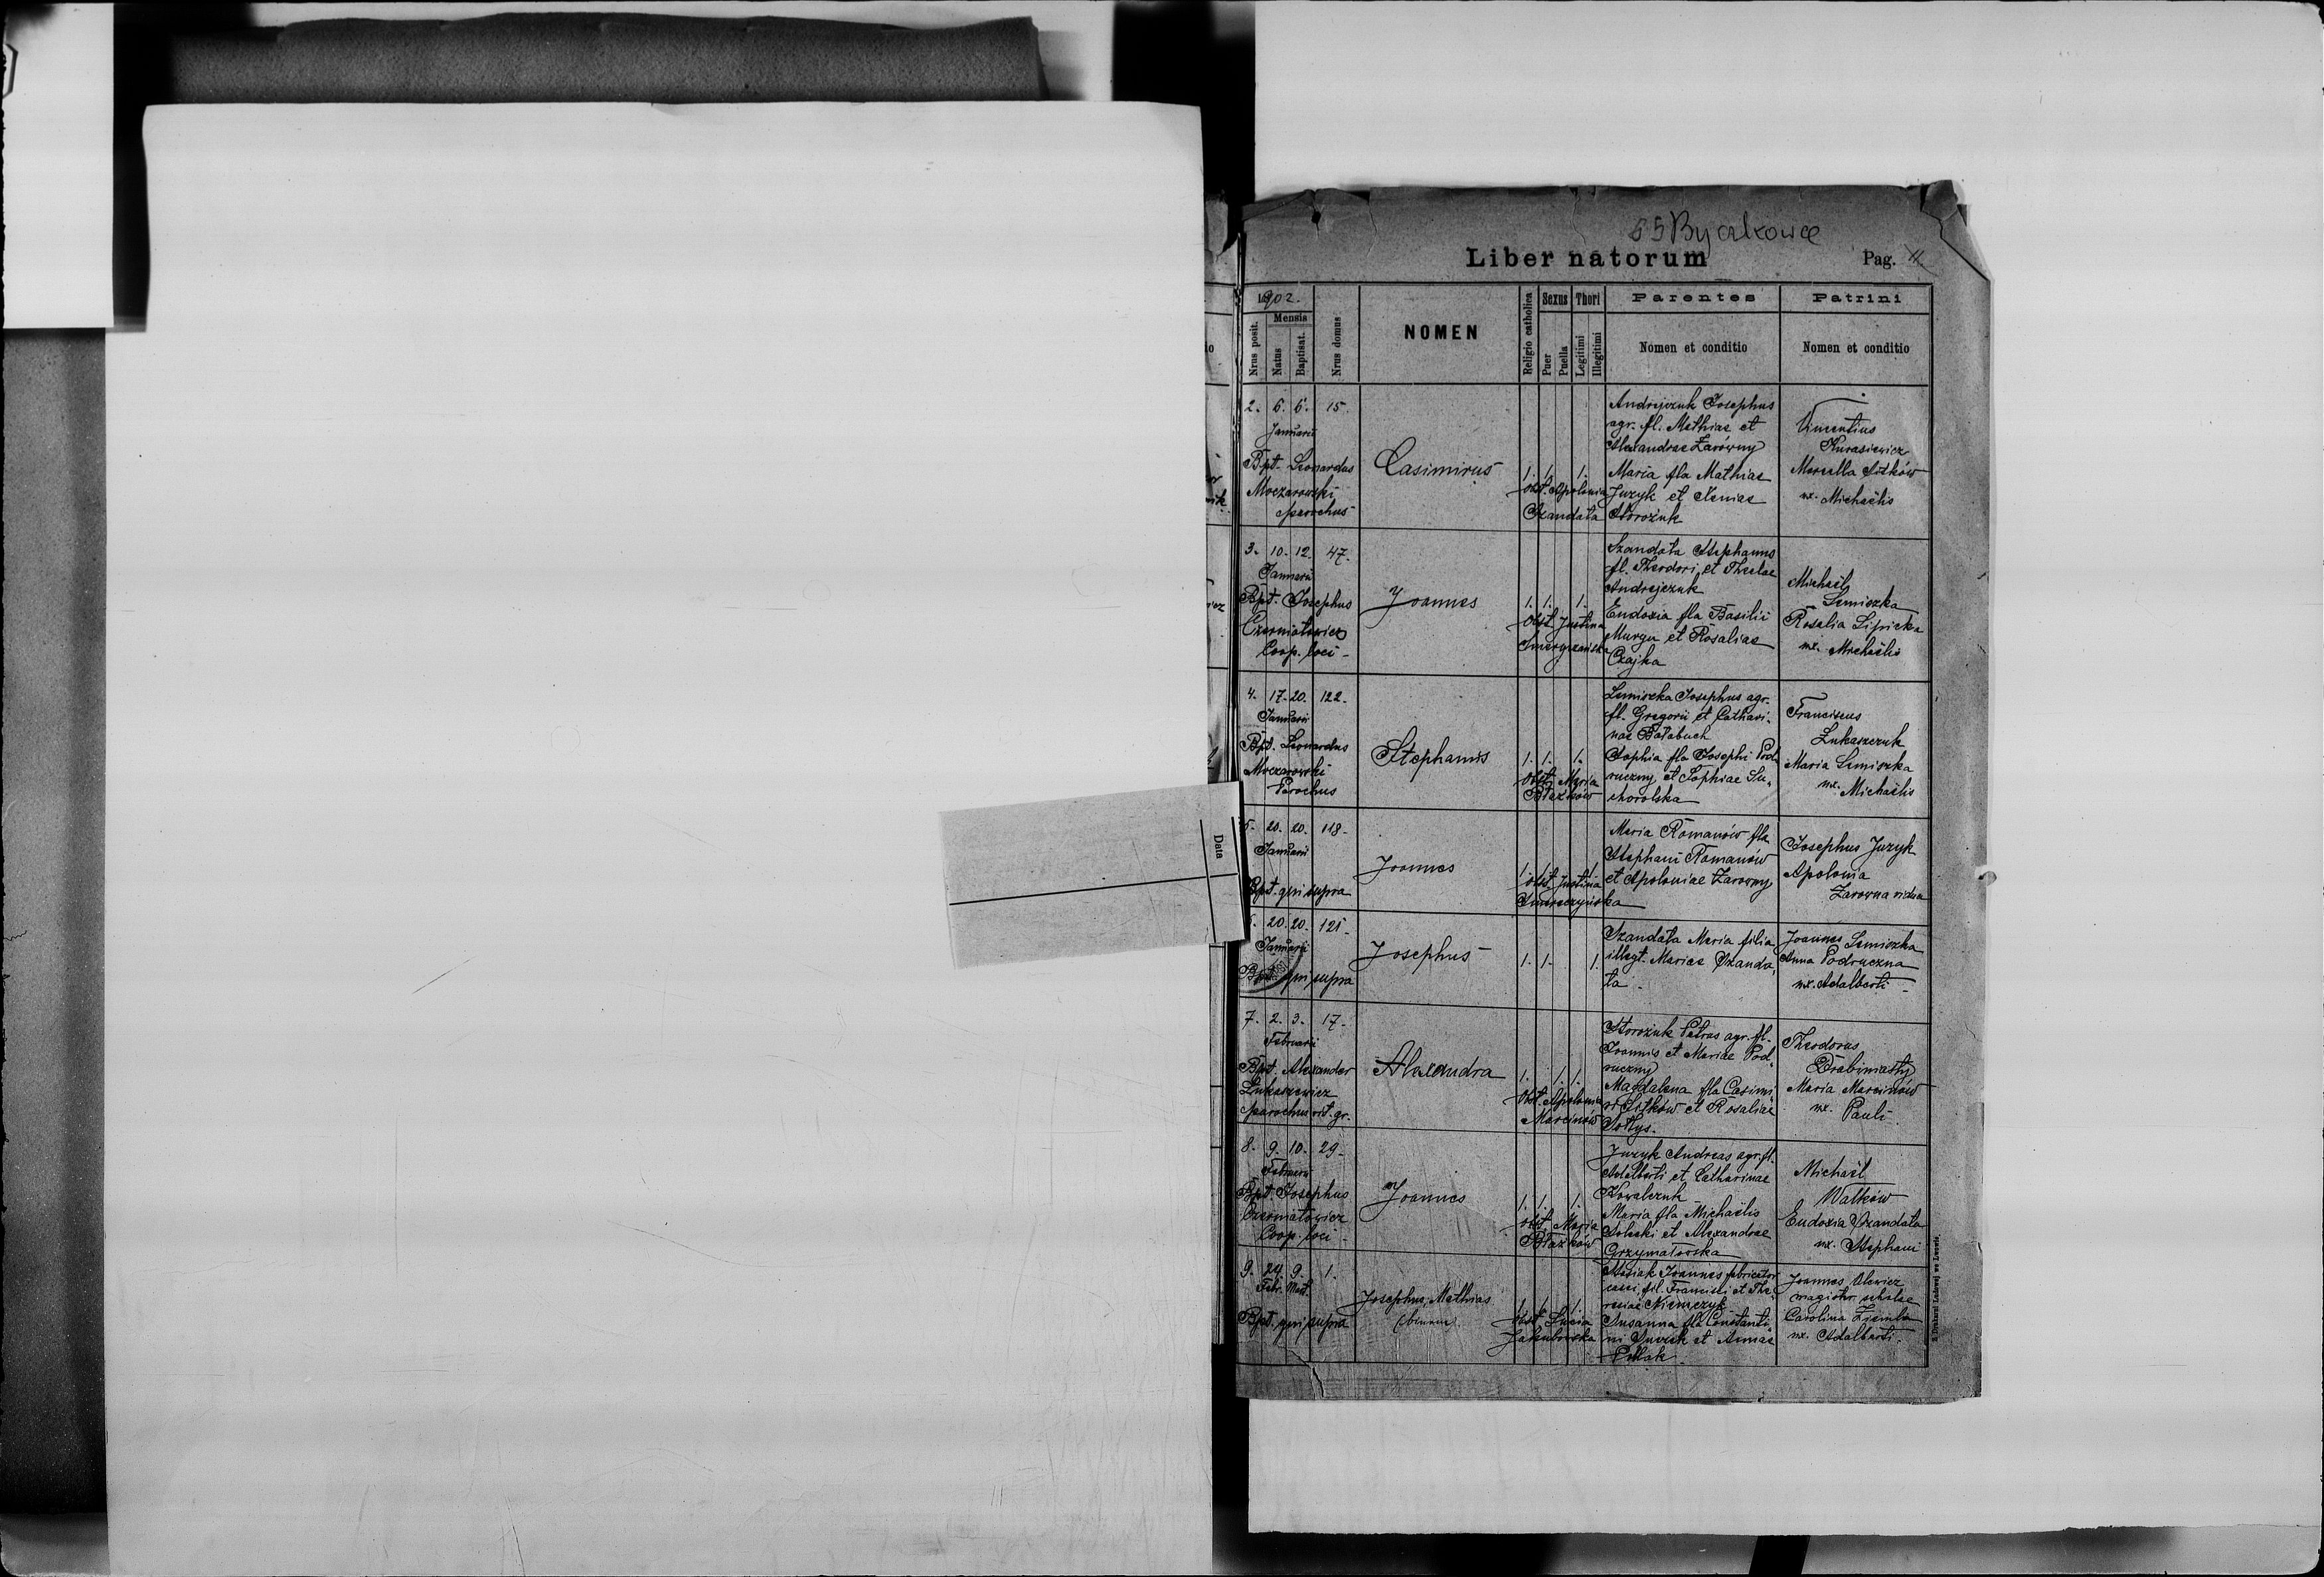 65 Byczkowce
Liber natorum Pag. 11.
1902. Sexus Thori Parentes Patrini
Nrus posit. Mensis Natus Baptisat. Nrus domus NOMEN Religio catholica Puer Puella Legitimi Illegitimi Nomen et conditio Nomen et conditio
2. 6. 6. 15.
Januarii
Bpt. Leonardus
Moczarowski
parochus
Casimirus
1. 1. 1.
Obst. Apolonia
Szandała
Andrejczuk Josephus
agr. fl. Mathiae et
Alexandrae Zarówny
Maria fla Mathiae
Juzyk et Xeniae
Storożuk
Vincentius
Kurasiewicz
Marcella Sitków
ux. Michaëlis
3. 10. 12. 47.
Januarii
Bpt. Josephus
Czerniatowicz
Coop. loci
Joannes
1. 1. 1.
Obst. Justina
Szandała Stephanus
fl. Theodori et Theclae
Andrejczuk
Eudoxia fla Basilii
Murga et Rosaliae
Czajka
Michaël
Lemiszka
Rosalia Lipicka
ux. Michaëlis
4. 17. 20. 122.
Januarii
Bpt. Leonardus
Moczarowski
Parochus
Stephanus
1. 1. 1.
Obst. Maria
Błażków
Lemiszka Josephus agr.
fl. Gregorii et Cathari-
nae Bałabuch
Sophia fla Josephi Pod-
ruczny et Sophiae Su-
chorolska
Franciscus
Łukaszczuk
Maria Lemiszka
ux. Michaëlis
5. 20. 20. 118.
Januarii
Bpt. qui supra
Joannes
1. 1. 1.
Obst. Justina
Maria Romanów fla
Stephani Romanów
et Apoloniae Zarowny
Josephus Juzyk
Apolonia
Zarowna vidua
6. 20. 20. 121.
Januarii
Bpt. qui supra
Josephus
1. 1. 1.
Szandała Maria filia
illegt. Mariae Szanda-
ła
Joannes Lemiszka
Anna Podruczna
ux. Adalberti
7. 2. 3. 17.
Februarii
Bpt. Alexander
Łukaszewicz
parochus rit. gr.
Alexandra
1. 1. 1.
Obst. Apolonia
Marcinów
Storożuk Petrus agr. fl.
Joannis et Mariae Pod-
ruczny
Magdalena fla Casimi-
ri Sitków et Rosaliae
Sołtys.
Theodorus
Drabiniasty
Maria Marcinów
ux. Pauli
8. 9. 10. 29.
Februarii
Bpt. Josephus
Czerniatowicz
Coop. loci
Joannes
1. 1. 1.
Obst. Maria
Błażków
Juzyk Andreas agr. fl.
Adalberti et Catharinae
Kowalczuk
Maria fla Michaëlis
Solecki et Alexandrae
Grzymałowska
Michaël
Watków
Eudoxia Szandała
ux. Stephani
9. 24. 9. 1.
Febr. Mart.
Bpt. qui supra
Josephus, Mathias
(binom.)
1. 1. 1.
Obst. Lucia
Jakubowska
Joannes fabricator
casei, fil. Francisci et The-
resiae Niemczyk
Susanna fla Constanti-
ni et Annae
Pollak
Joannes Olewicz
magister scholae
Carolina Ziemba
ux. Adalberti.
Z Drukarni Ludowej we Lwowie.
Data